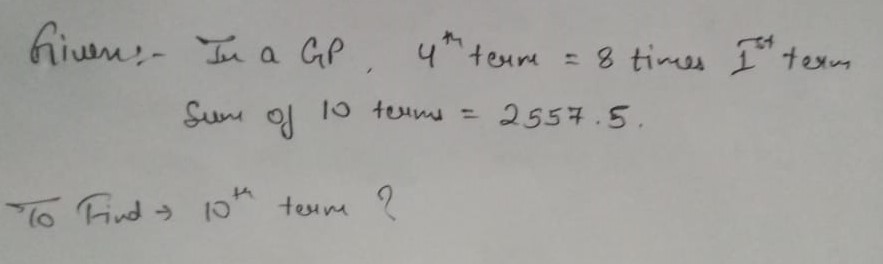 Given:- In a GP, 4th term = 8 times Ist term
Sum of 10 terms = 2557.5.
To Find → 10th term ?